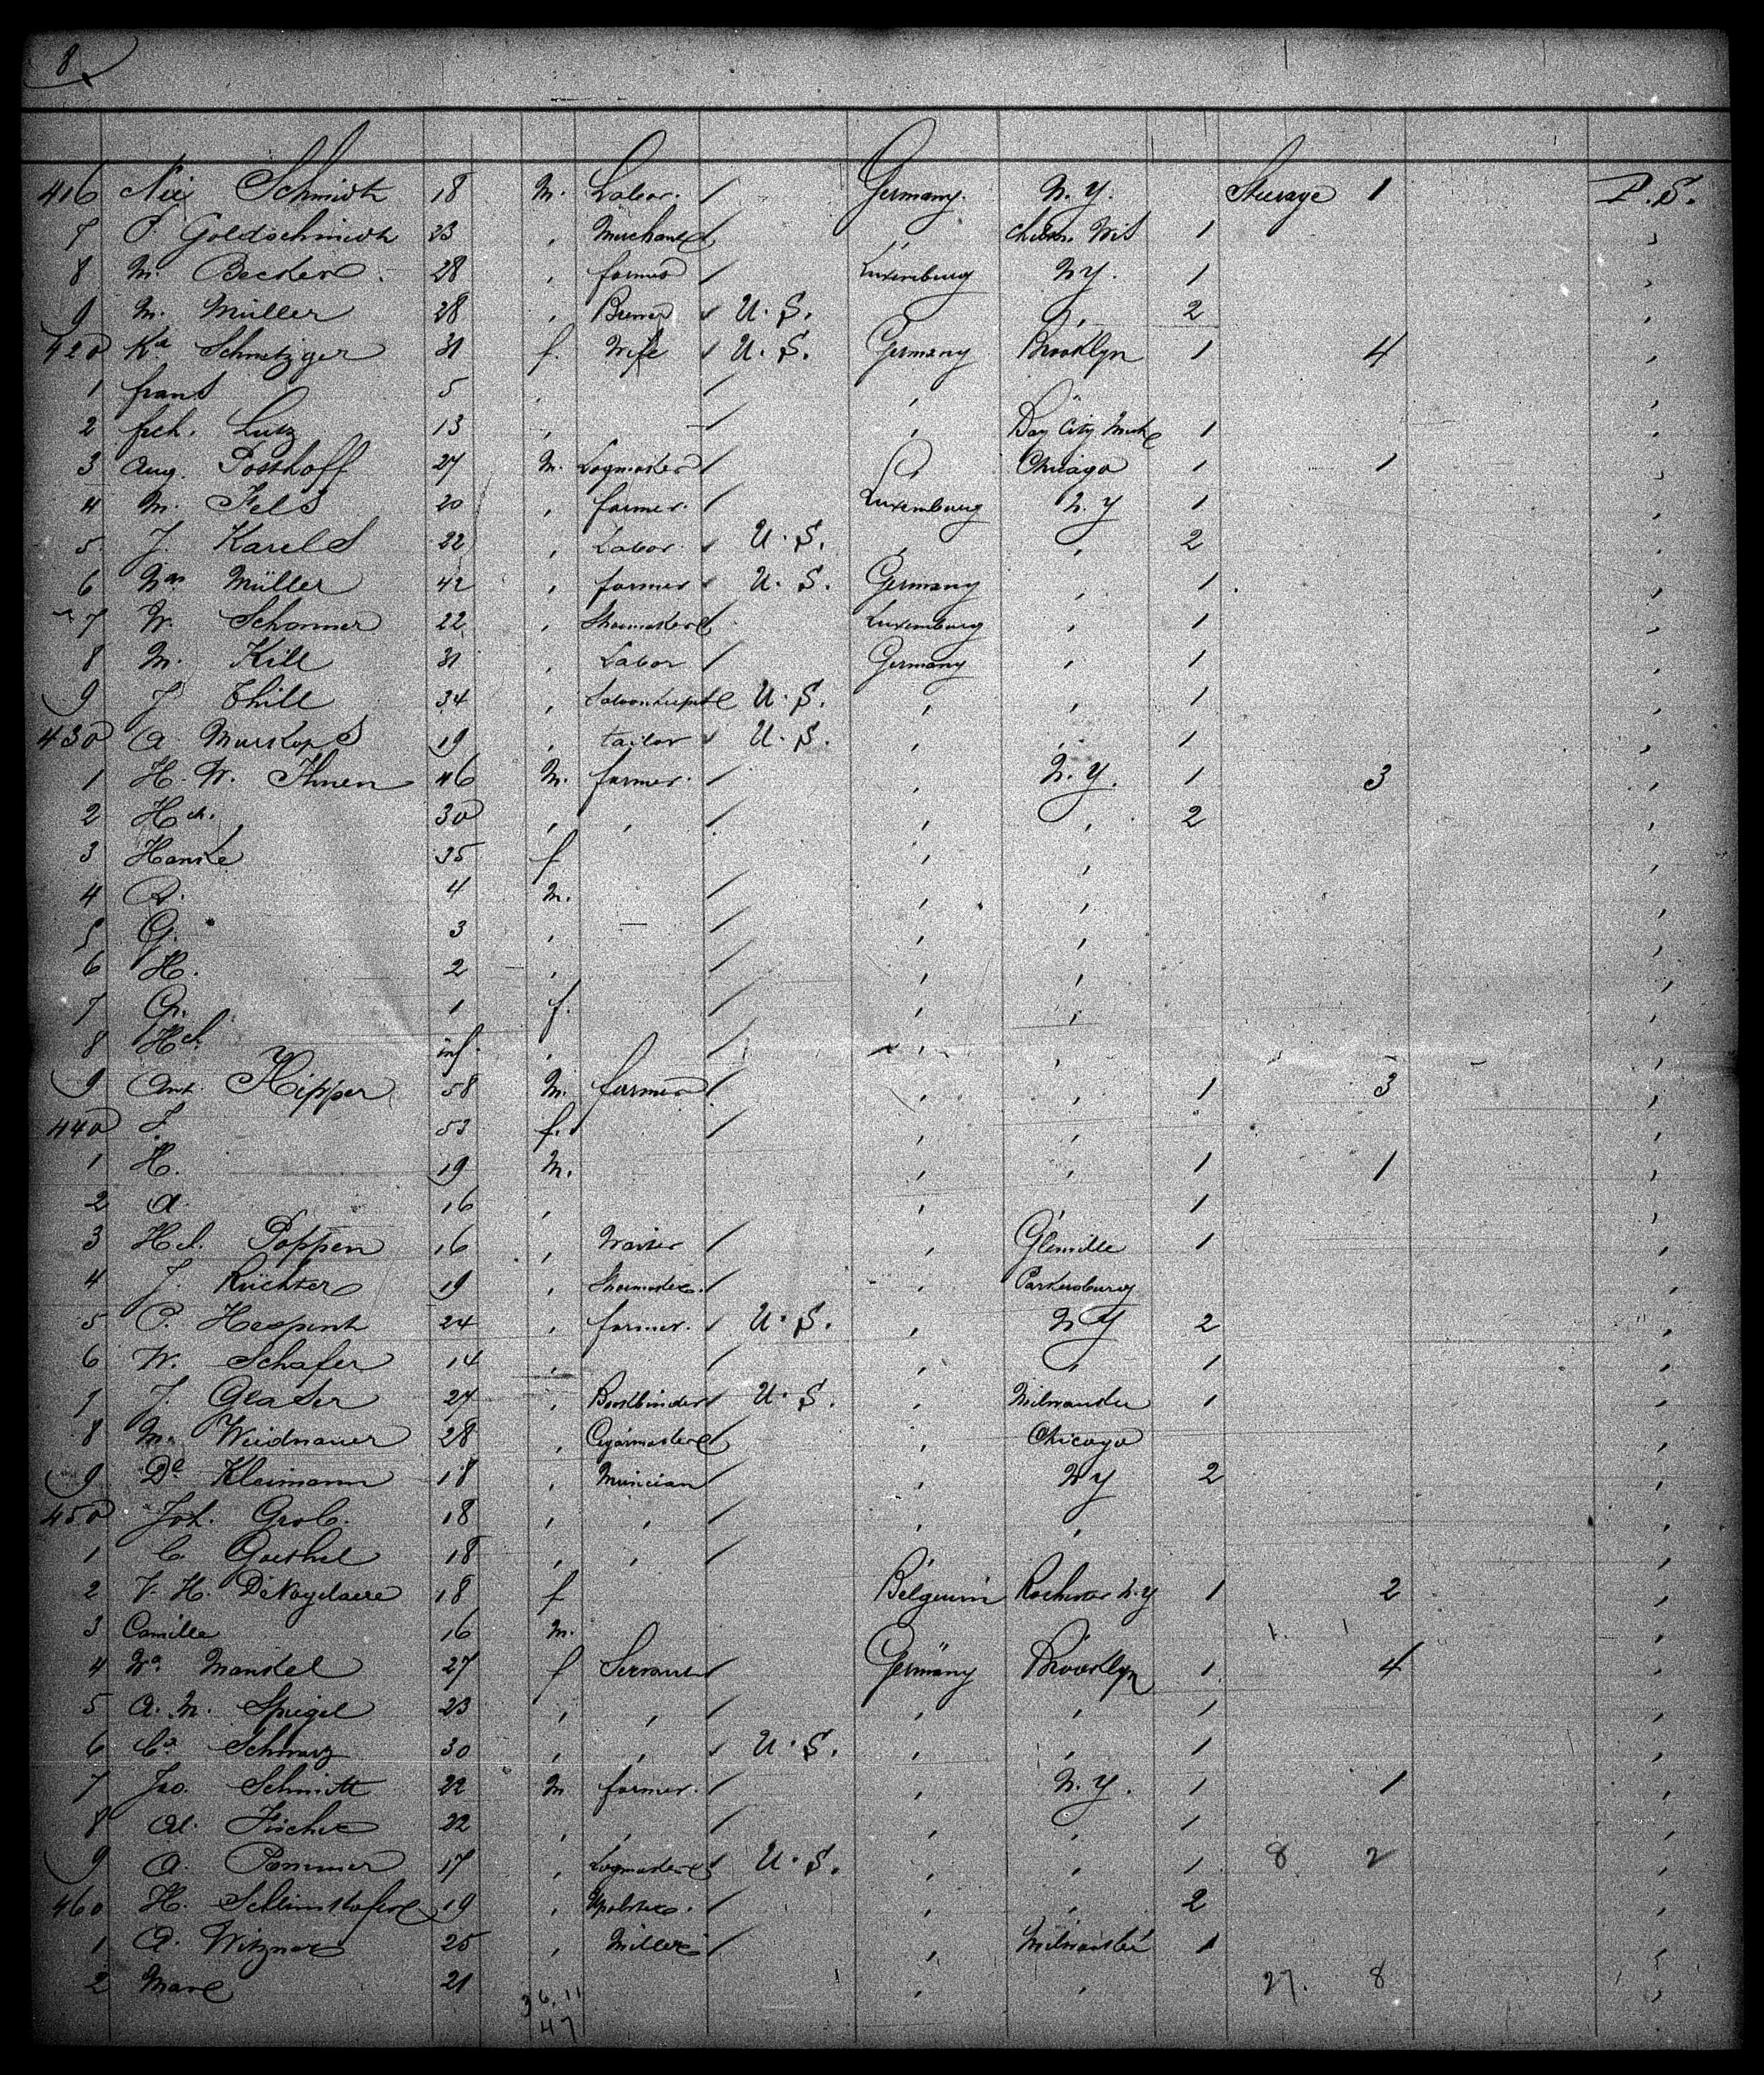 8
416 Nic Schmidt 18 M. Labor. / Germany. N.Y. Steerage 1 P.S.
7 P. Goldschmidt 23 , Merchant / , Wis 1 ,
8 M. Becker 28 , farmer / Luxemburg N.Y. 1 ,
9 M. Müller 28 , Brewer / U.S. , , 2 ,
420 Ka Schmetziger 31 f. Wife / U.S. Germany Brooklyn 1 4 ,
1 frans 5 , / , ,
2 fch. Lutz 13 , / , Bay City Mich 1 ,
3 Aug. Posthoff 27 M. / , Chicago 1 1 ,
4 M. Fels 20 , farmer. / Luxemburg N.Y 1 ,
5 J. Karels 22 , Labor. / U.S. , , 2 ,
6 Müller 42 , farmer / U.S. Germany , 1 ,
7 W. Schanner 22 , Shoemaker / Luxemburg , 1 ,
8 M. Kill 31 , Labor / Germany , 1 ,
9 J Thill 34 , Saloonkeeper U.S. , , 1 ,
430 A. Murkops 19 , tailor / U.S. , , 1 ,
1 H. W. Ihnen 46 M. farmer. / , N.Y. 1 3 ,
2 Hch. 30 , , / , , 2 ,
3 Hanke 35 f , , ,
4 R. 4 M. / , , ,
5 G. 3 , — / , , ,
6 H. 2 , / , , ,
7 Gr. 1 f. / , , ,
8 Hch. inf. , / , , ,
9 Ant. Kipper 58 M. farmer / , , 1 3 ,
440 53 f. / , , ,
1 H. 19 M. , , 1 1 ,
2 A. 16 , , , 1 ,
3 Hd. Poppen 16 , Waiter / , Glenville 1 ,
4 J. Küchter 19 , Shoemaker. / , Parkersburg ,
5 P. Hespenh 24 , farmer. / U.S. , N.Y 2 ,
6 W. Schafer 14 , / , , 1 ,
7 J. Glaser 24 , Bookbinder / U.S. , Milwaukee 1 ,
8 M. Weidnauer 28 , Cigarmaker / , Chicago ,
9 Dl Kleimann 18 , Musician / , N.Y 2 ,
450 Joh. Grob. 18 , , / , , ,
1 C. Goethel 18 , , / , ,
2 V. H. DeNayelaere 18 f Belguim Rochester N.Y 1 2 ,
3 Camille 16 M. ,
4 Mankel 27 f Servant / Germany Brooklyn 1 4 ,
5 A. M. Spiegel 23 , , / , , 1 ,
6 Ca Schwarz 30 , , / U.S. , , 1 ,
7 Jac. Schmitt 22 M farmer. / , N.Y. 1 1 ,
8 Al. Fischer 22 , , / , , 1 ,
9 A. Pommer 17 , / U.S. , , 1 8 2 ,
460 H. 19 , / , , 2 ,
1 A. Witzner 25 , Miller / , Milwaukee 1 ,
2 Marc 21 , , 27. 8 ,
36. 11
47